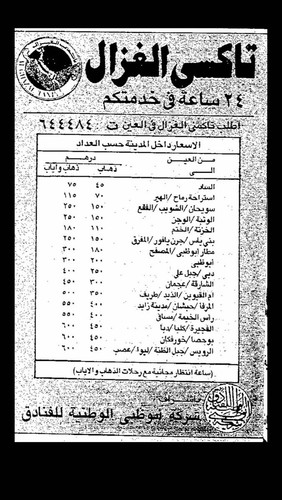 تاكسى الغزال
٢٤ ساعة فى خدمتكم
اطلب تاكسى الغزال فى العين ت ٦٤٤٤٨٤
الاسعار داخل المدينة حسب العداد
من العين درهم
الى ذهاب ذهاب واياب
الساد ٤٥ ٧٥
استراحة رماح / الهير ٧٠ ١١٥
سويحان / الشويب / الفقع ١٥٠ ٢٥٠
الوثبة / الوجن ١٥٠ ٢٥٠
الخزنة / الختم ١١٠ ١٨٠
بني ياس / جرن يافور / المفرق ١٥٠ ٢٥٠
مطار ابوظبي / المصفح ١٨٠ ٣٠٠
ابوظبي ٢٠٠ ٣٠٠
دبي / جبل علي ٢٥٠ ٤٠٠
الشارقة / عجمان ٣٠٠ ٤٥٠
ام القيوين / الذيد / طريف ٣٥٠ ٥٠٠
المرفأ / حبشان / مدينة زايد ٤٠٠ ٥٥٠
رأس الخيمة / مسافي ٤٠٠ ٥٥٠
الفجيرة / كلبا / دبا ٤٥٠ ٦٠٠
بوحصا / خورفكان ٤٥٠ ٦٠٠
الرويس / جبل الظنة / ليوا / عصب ٤٥٠ ٦٠٠
(ساعة انتظار مجانية مع رحلات الذهاب والاياب)
شركة ابوظبي الوطنية للفنادق